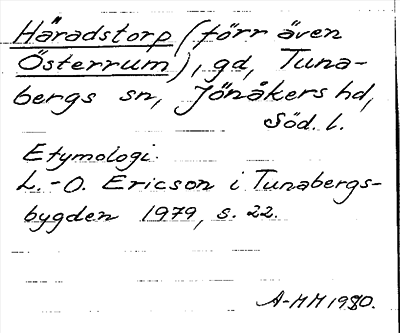 Häradstorp (förr även
Österrum), gd, Tuna-
bergs sn, Jönåkers hd,
Söd. l.
Etymologi:
L.-O. Ericson i Tunabergs-
bygden 1979, s. 22.
A-MM 1980.